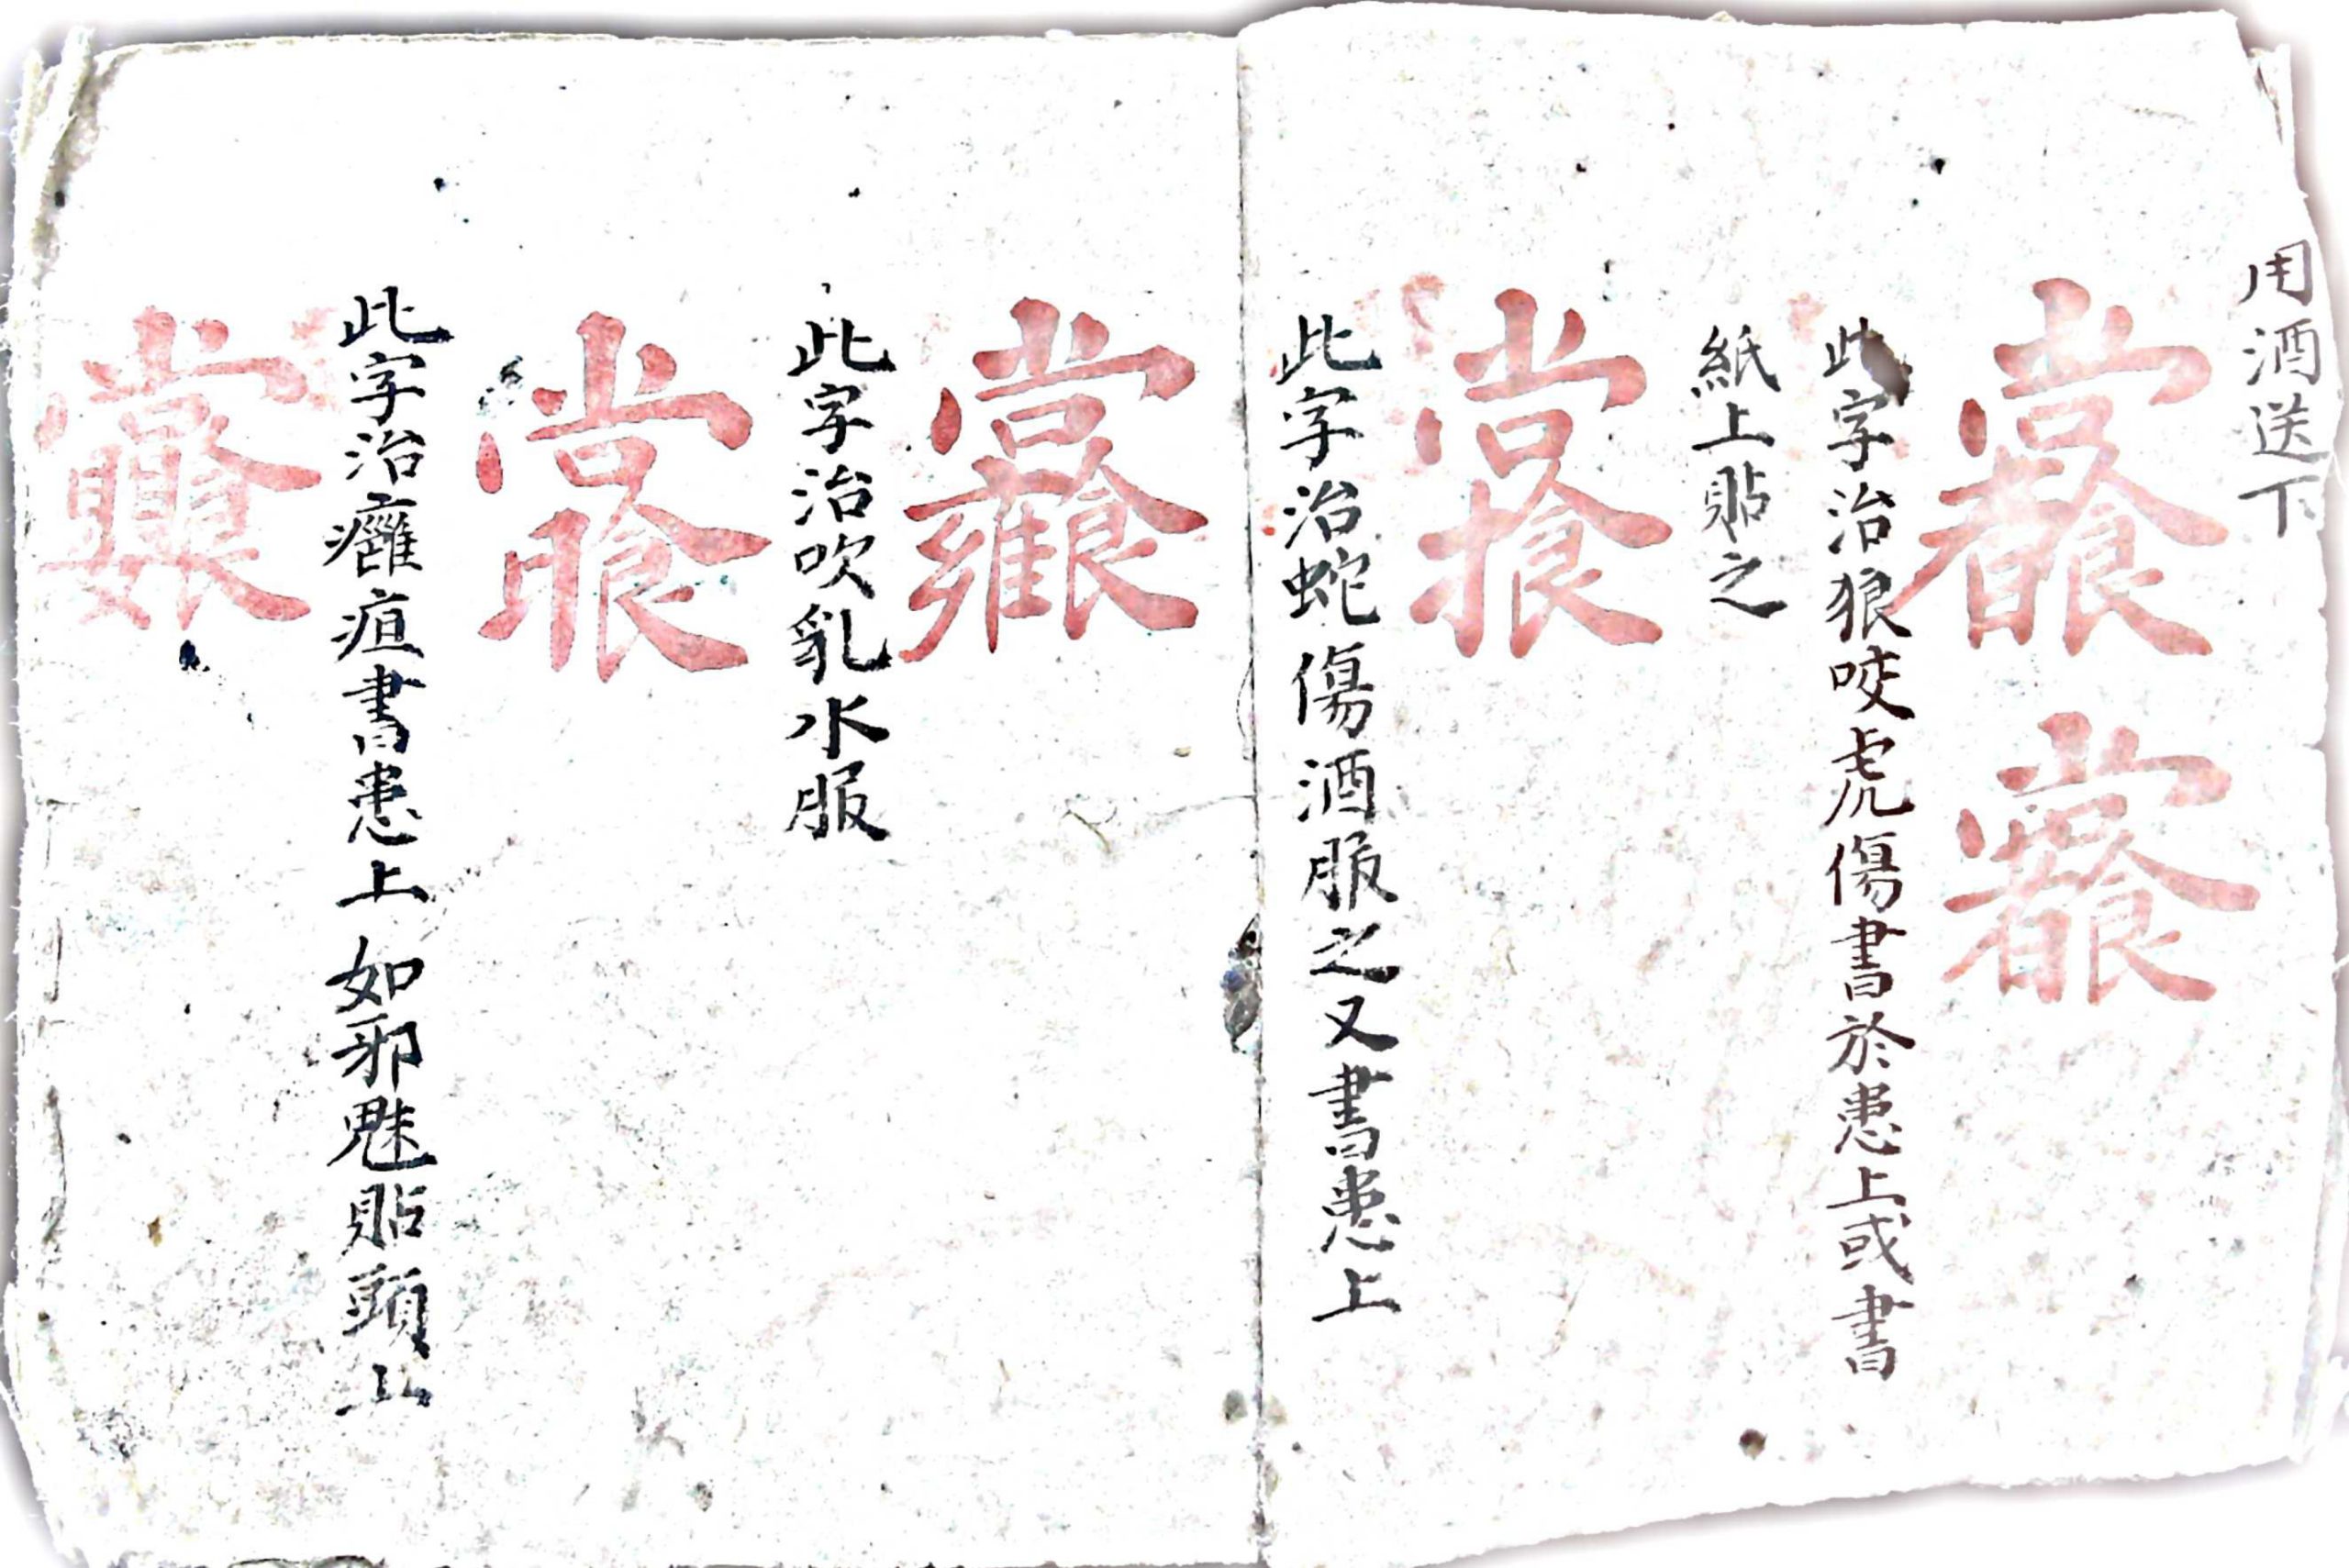 用酒送下
此字治狼咬虎傷書於患上或書
紙上貼之
此字治蛇傷酒服之又書患上
此字治吹乳水服
此字治癰疽書患上如邪魅貼頭上